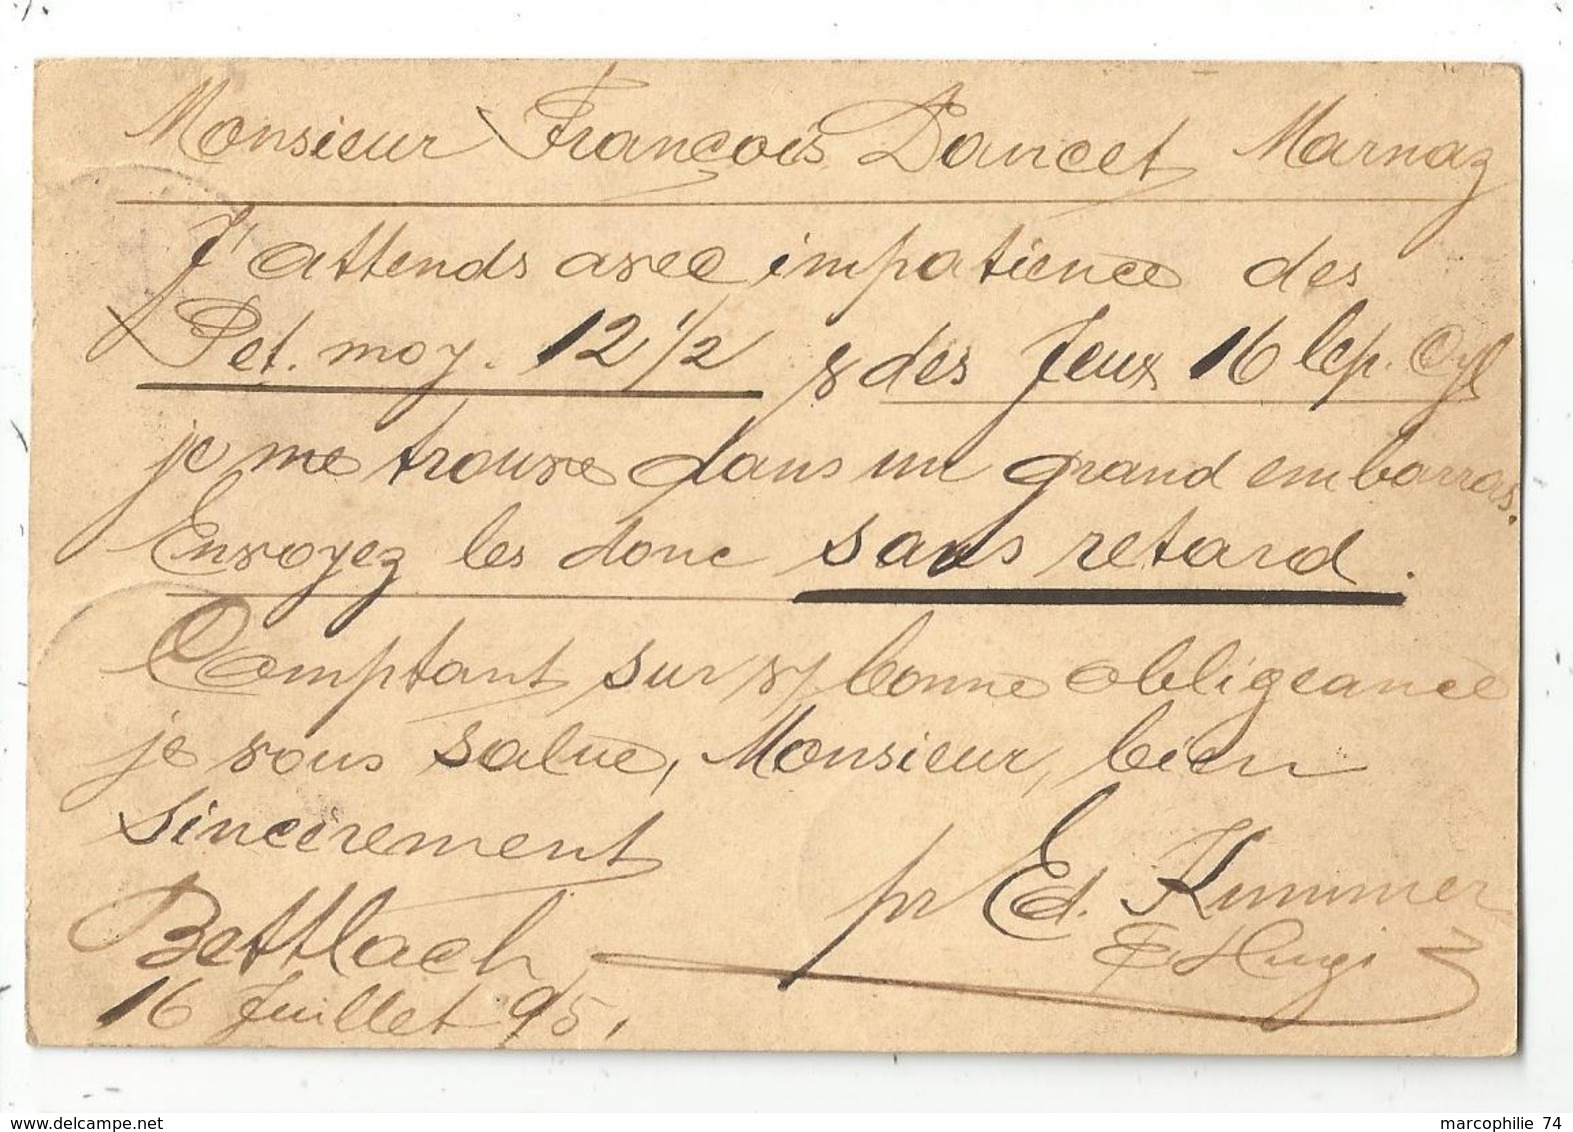 Monsieur François Dancet Marnaz
J'attends avec impatience des
Pet. moy. 12 1/2 & des Jeux 16 lep. Cyl
je me trouve dans un grand embarras.
Envoyez les donc sans retard.
Comptant sur v/ bonne obligeance
je vous salue, Monsieur, bien
sincèrement
pr Ed. Kummer
E Hugi
Bettlach,
16 Juillet 95.
www.delcampe.net
marcophilie 74